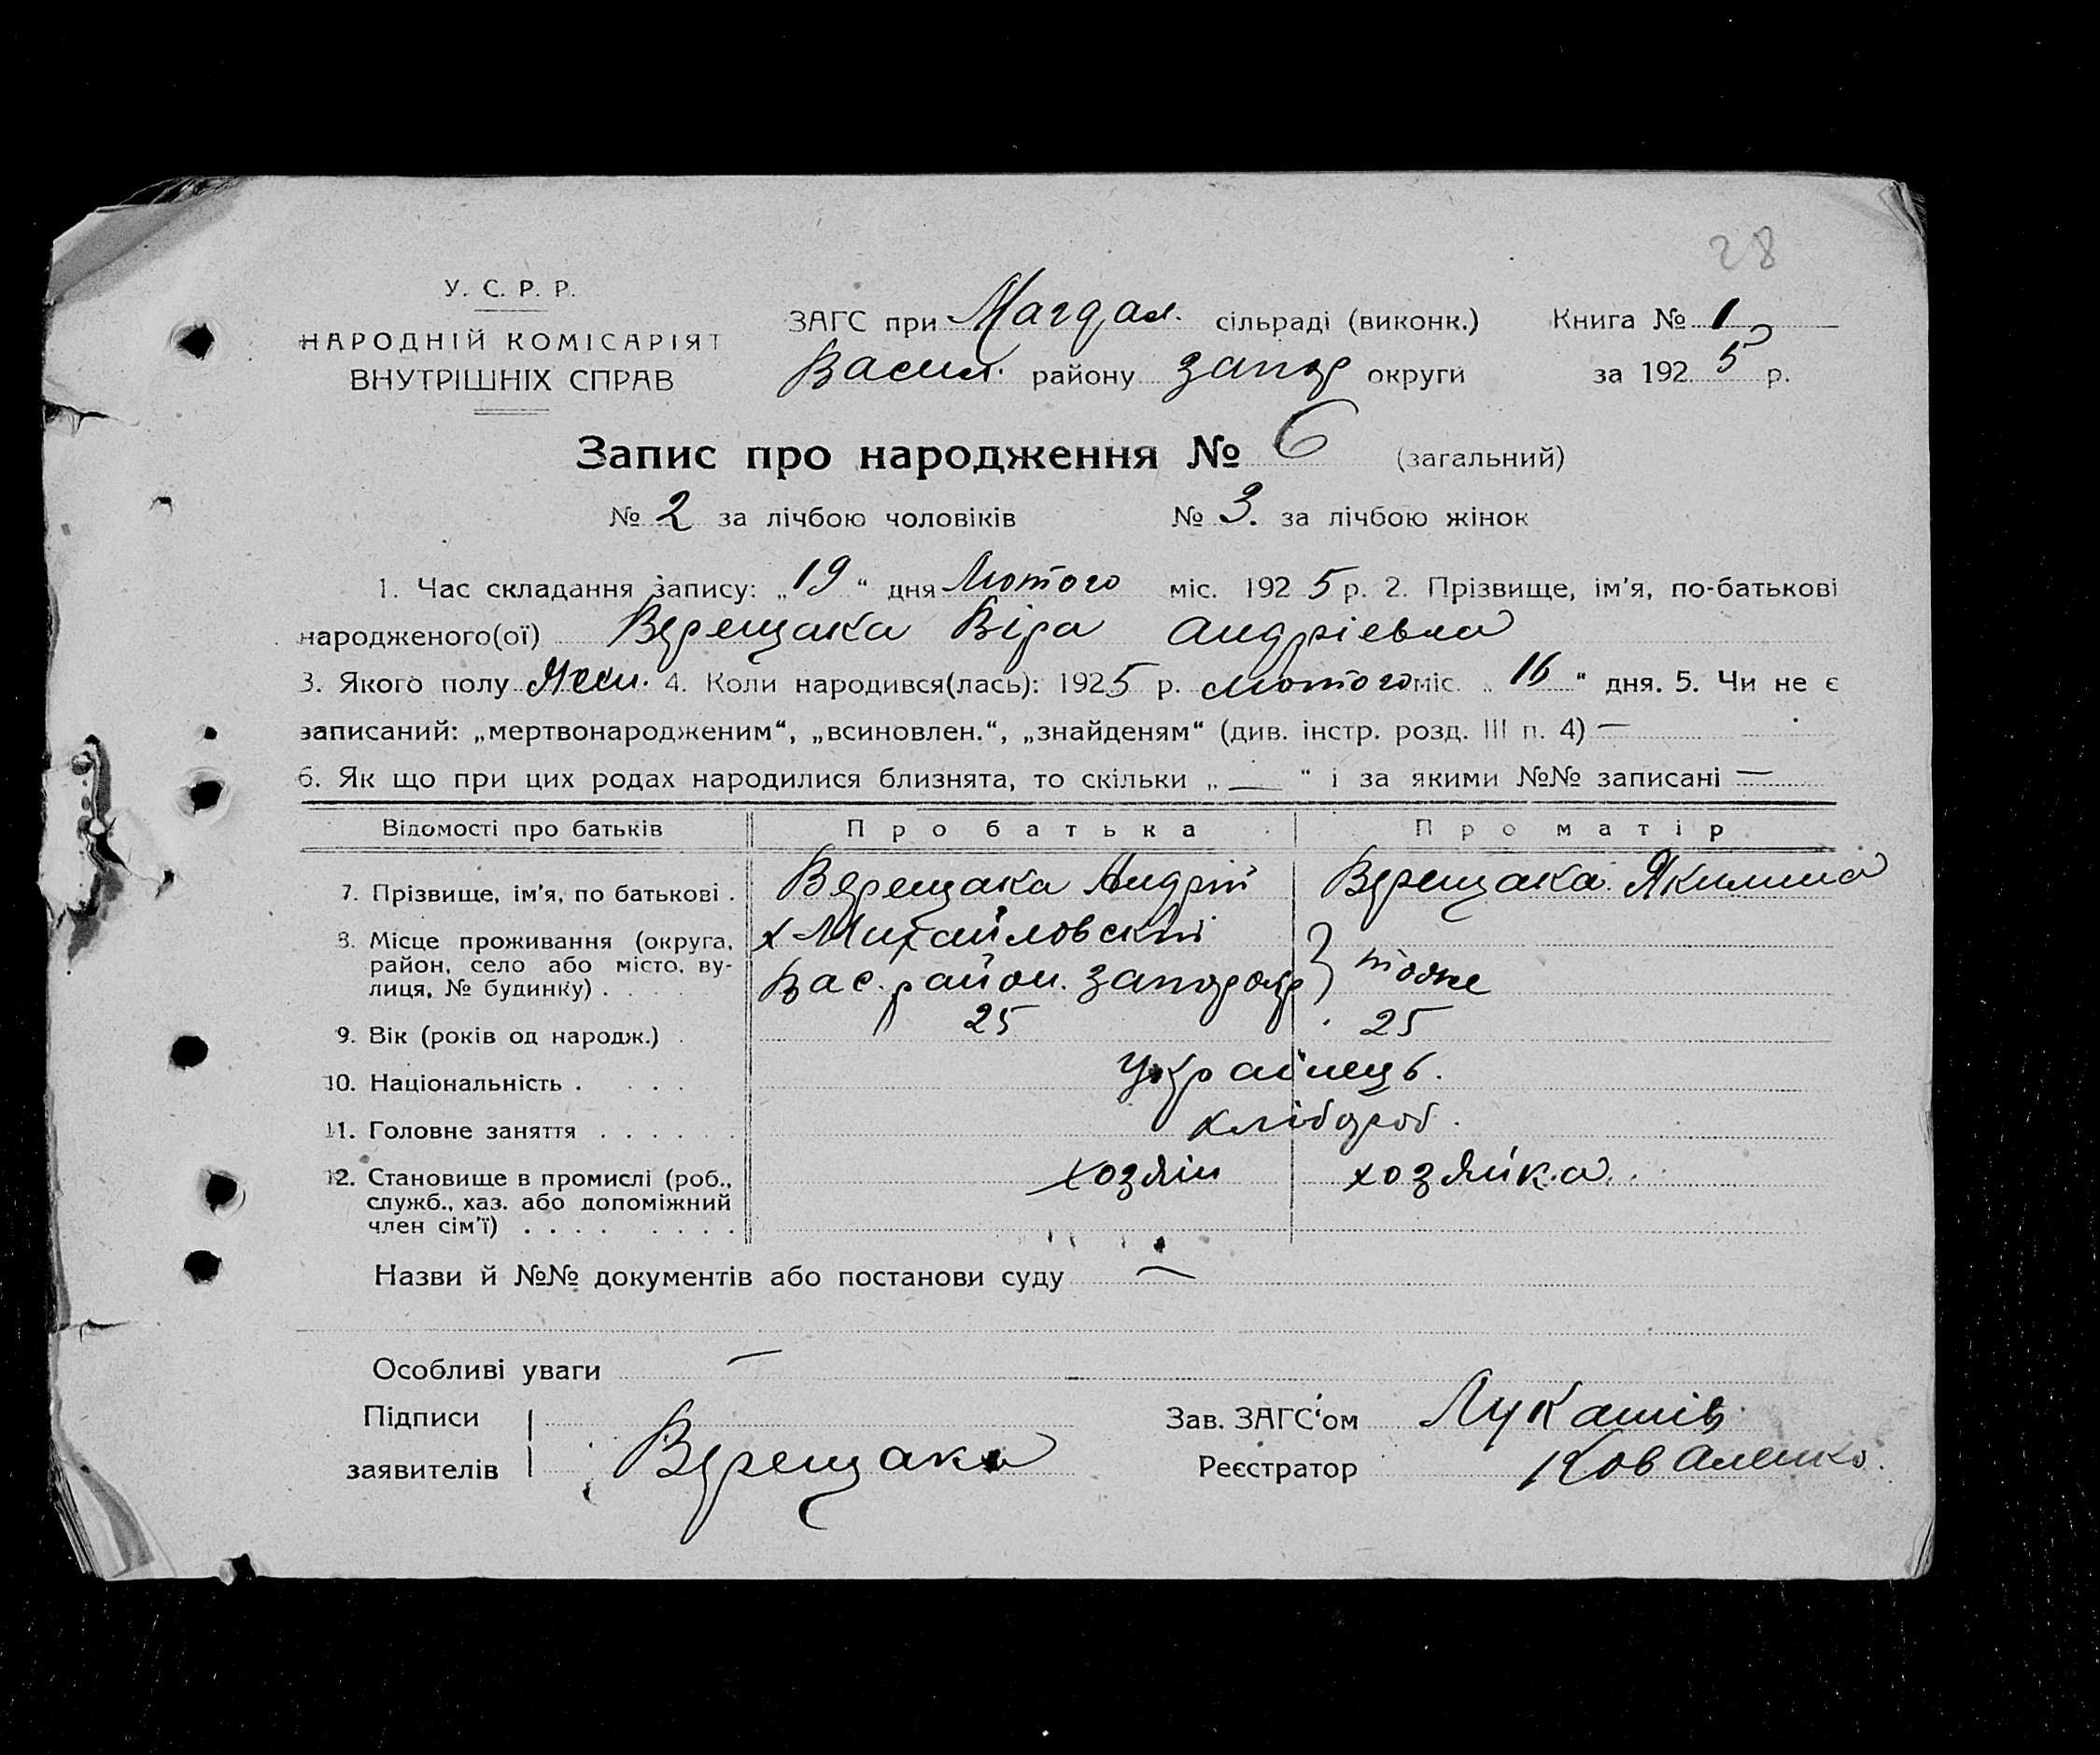 28
У. С. Р. Р.
НАРОДНІЙ КОМІСАРІЯТ
ВНУТРІШНІХ СПРАВ
ЗАГС при Магдал. сільраді (виконк.) Книга № 1
Васил. району Запор округи за 1925 р.
Запис про народження № 6 (загальний)
№ 2 за лічбою чоловіків № 3. за лічбою жінок
1. Час складання запису: „19“ дня Лютого міс. 1925 р. 2. Прізвище, ім'я, по-батькові
народженого(ої) Верещака Віра Андріевна
3. Якого полу Жен. 4. Коли народився(лась): 1925 р. Лютого міс. „16“ дня. 5. Чи не є
записаний: „мертвонародженим“, „всиновлен.“, „знайденям“ (див. інстр. розд. III п. 4) —
6. Як що при цих родах народилися близнята, то скільки „—“ і за якими №№ записані —
Відомості про батьків Про батька Про матір
7. Прізвище, ім'я, по батькові . Верещака Андрій Верещака Якилина
8. Місце проживання (округа, район, село або місто, ву-лиця, № будинку) . . . . х Михайловский
Вас. район. Запорокр } тоже
9. Вік (років од народж.) . 25 25
10. Національність . . . . Українець.
11. Головне заняття . . . . . . хлібороб.
12. Становище в промислі (роб., служб., хаз. або допоміжний член сім'ї) . . . . . . . . хозяін хозяйка.
Назви й №№ документів або постанови суду —
Особливі уваги —
Підписи Зав. ЗАГС'ом Лукашів
заявителів Верещака Реєстратор Коваленко.